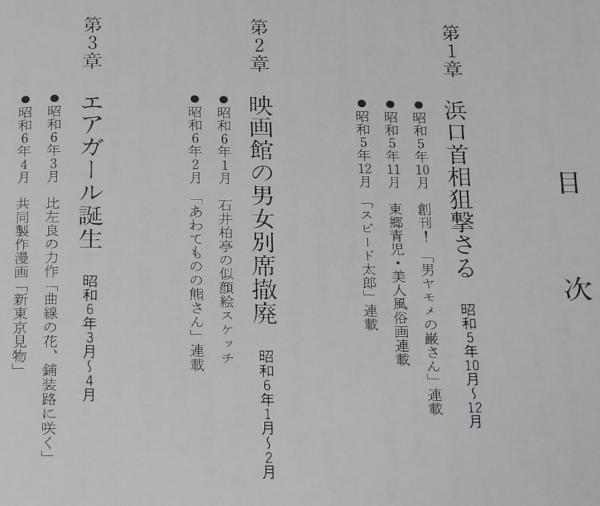 目次
第1章 浜口首相狙撃さる 昭和5年10月〜12月
●昭和5年10月 創刊！「男ヤモメの巌さん」連載
●昭和5年11月 東郷青児・美人風俗画連載
●昭和5年12月 「スピード太郎」連載
第2章 映画館の男女別席撤廃 昭和6年1月〜2月
●昭和6年1月 石井柏亭の似顔絵スケッチ
●昭和6年2月 「あわてものの熊さん」連載
第3章 エアガール誕生 昭和6年3月〜4月
●昭和6年3月 比左良の力作「曲線の花、鋪装路に咲く」
●昭和6年4月 共同製作漫画「新東京見物」